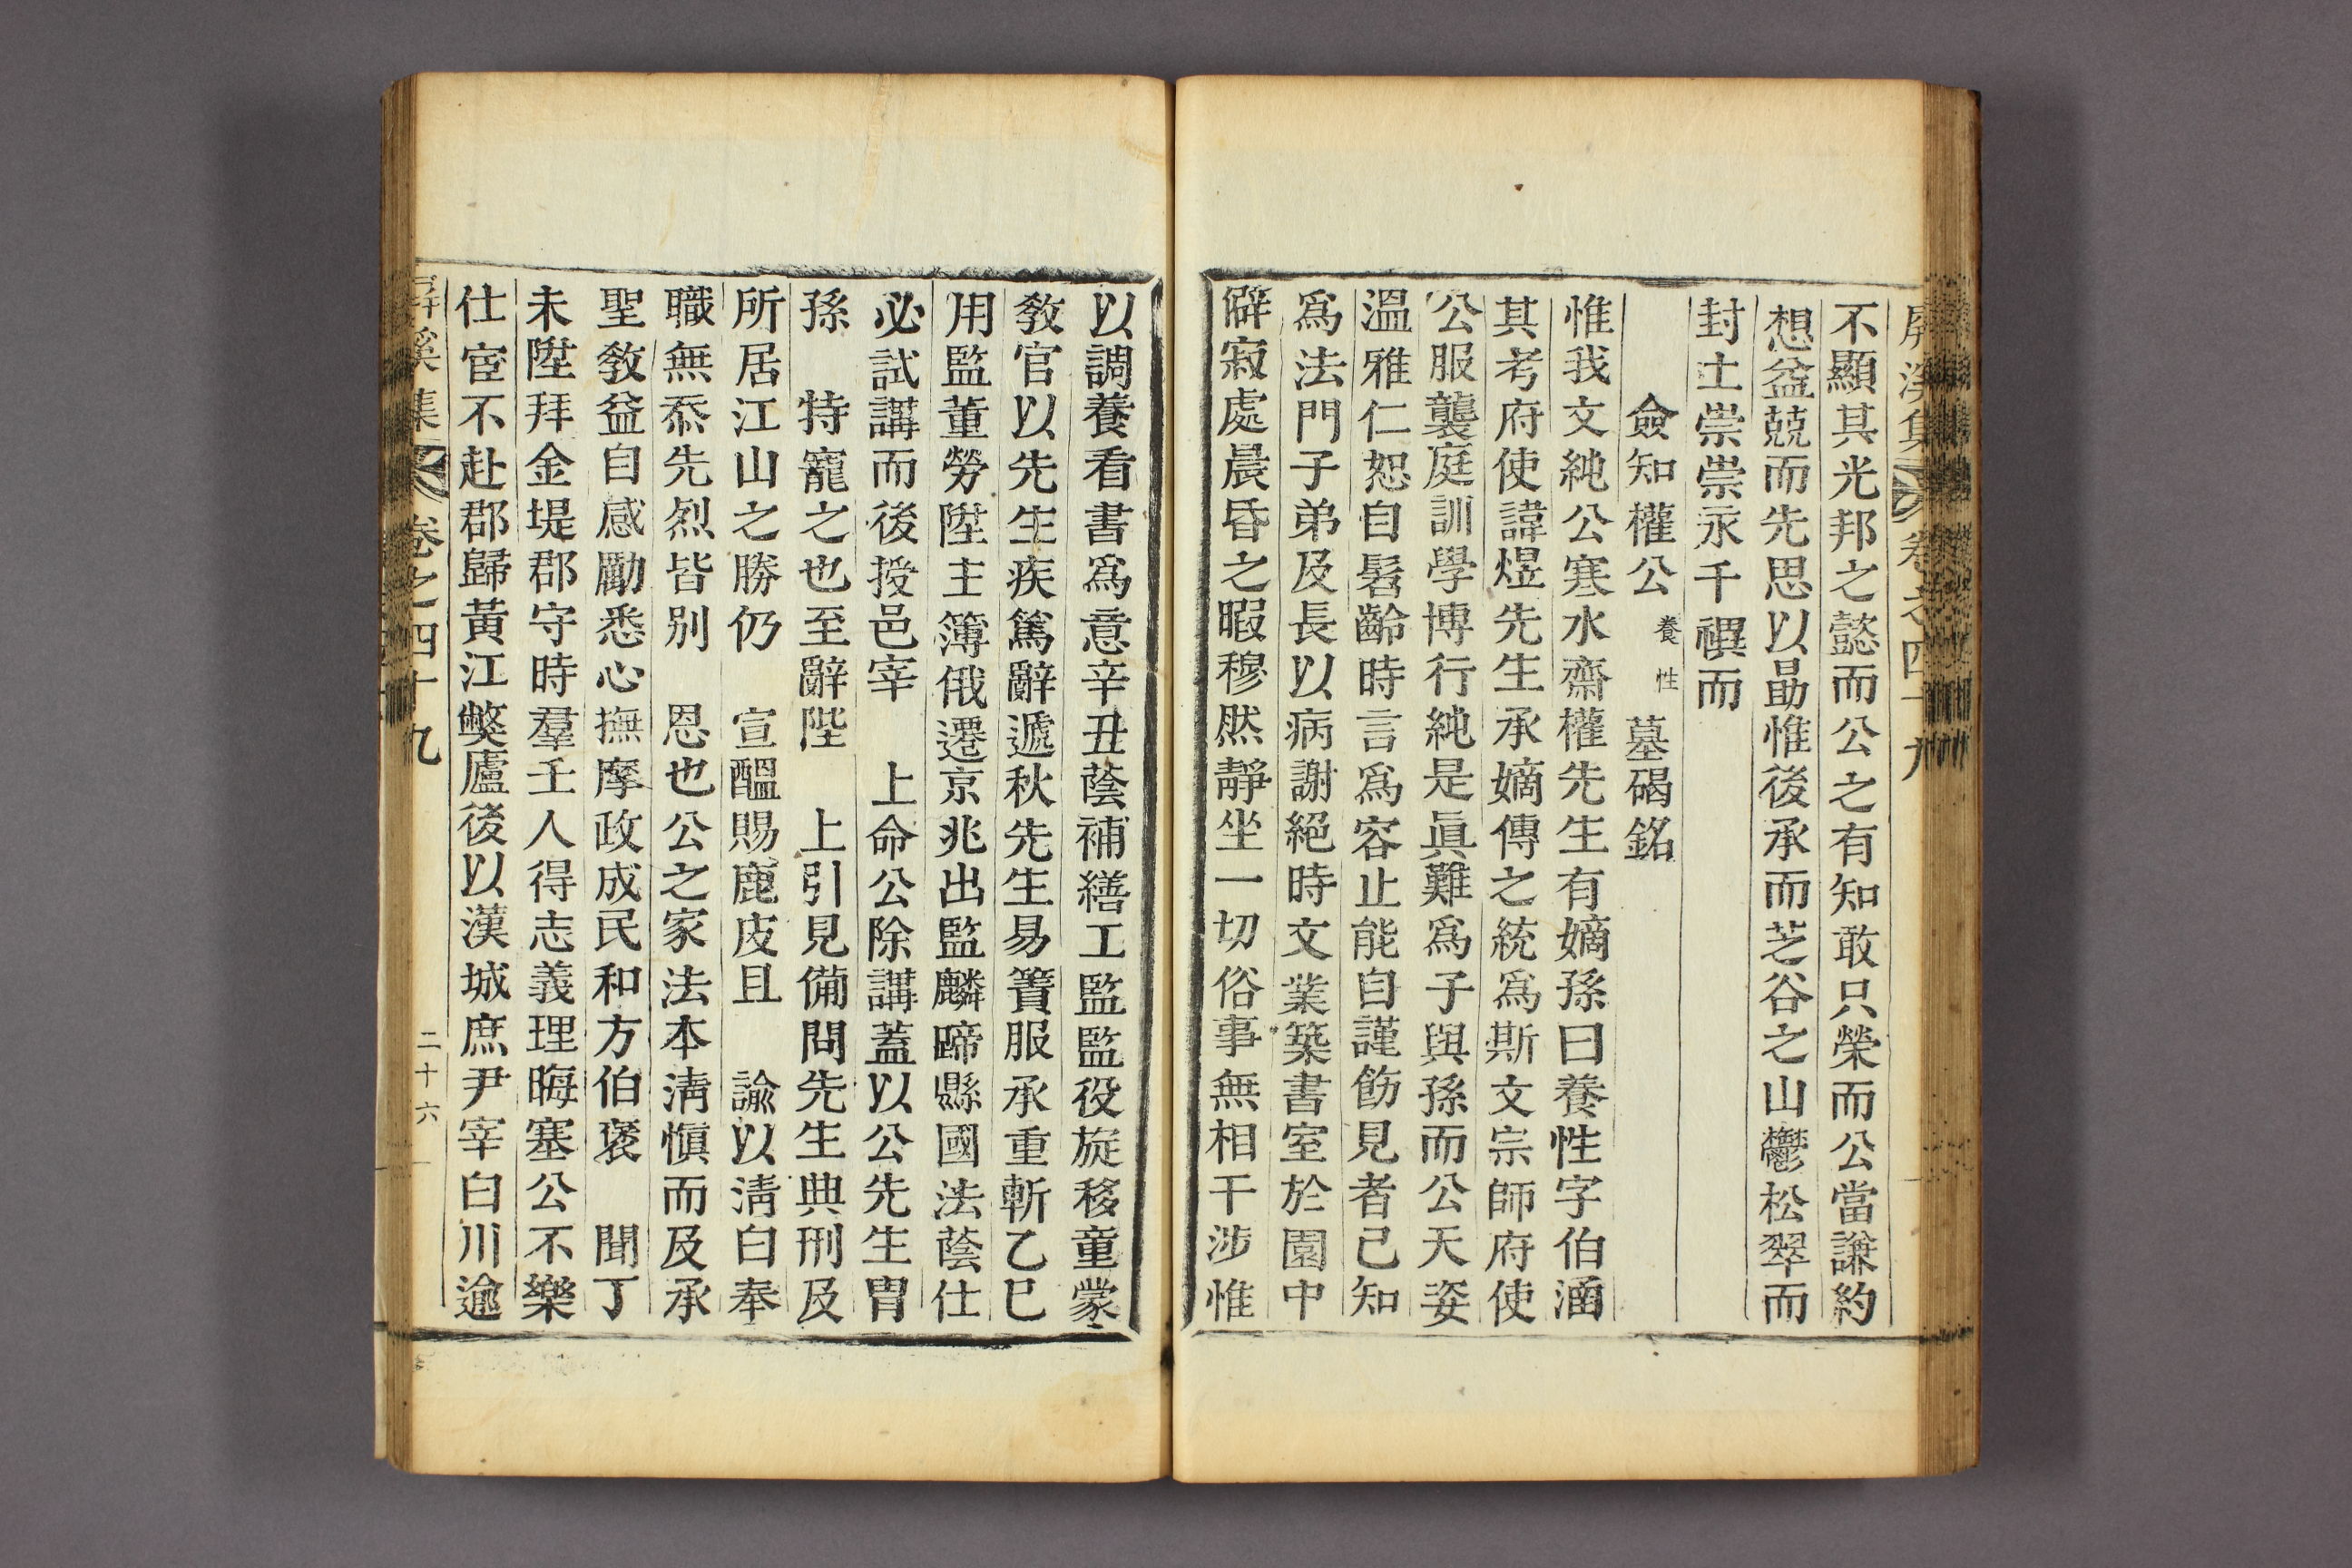 屏溪集 卷之四十九
不顯其光邦之懿而公之有知敢只榮而公當謙約
想益兢而先思以勗惟後承而芝谷之山鬱松翠而
封土崇崇永千禩而
僉知權公養性墓碣銘
惟我文純公寒水齋權先生有嫡孫曰養性字伯涵
其考府使諱煜先生承嫡傳之統爲斯文宗師府使
公服襲庭訓學博行純是眞難爲子與孫而公天姿
溫雅仁恕自髫齡時言爲容止能自謹飭見者己知
爲法門子弟及長以病謝絕時文業築書室於園中
僻寂處晨昏之暇穆然靜坐一切俗事無相干涉惟
以調養看書爲意辛丑蔭補繕工監監役旋移童蒙
敎官以先生疾篤辭遞秋先生易簀服承重斬乙巳
用監董勞陞主簿俄遷京兆出監麟蹄縣國法蔭仕
必試講而後授邑宰 上命公除講蓋以公先生冑
孫 特寵之也至辭陛 上引見備問先生典刑及
所居江山之勝仍 宣醞賜鹿皮且 諭以淸白奉
職無忝先烈皆别 恩也公之家法本淸愼而及承
聖敎益自感勵悉心撫摩政成民和方伯褒 聞丁
未陞拜金堤郡守時羣壬人得志義理晦塞公不樂
仕宦不赴郡歸黃江獘廬後以漢城庶尹宰白川逾
屏溪集 卷之四十九 二十六